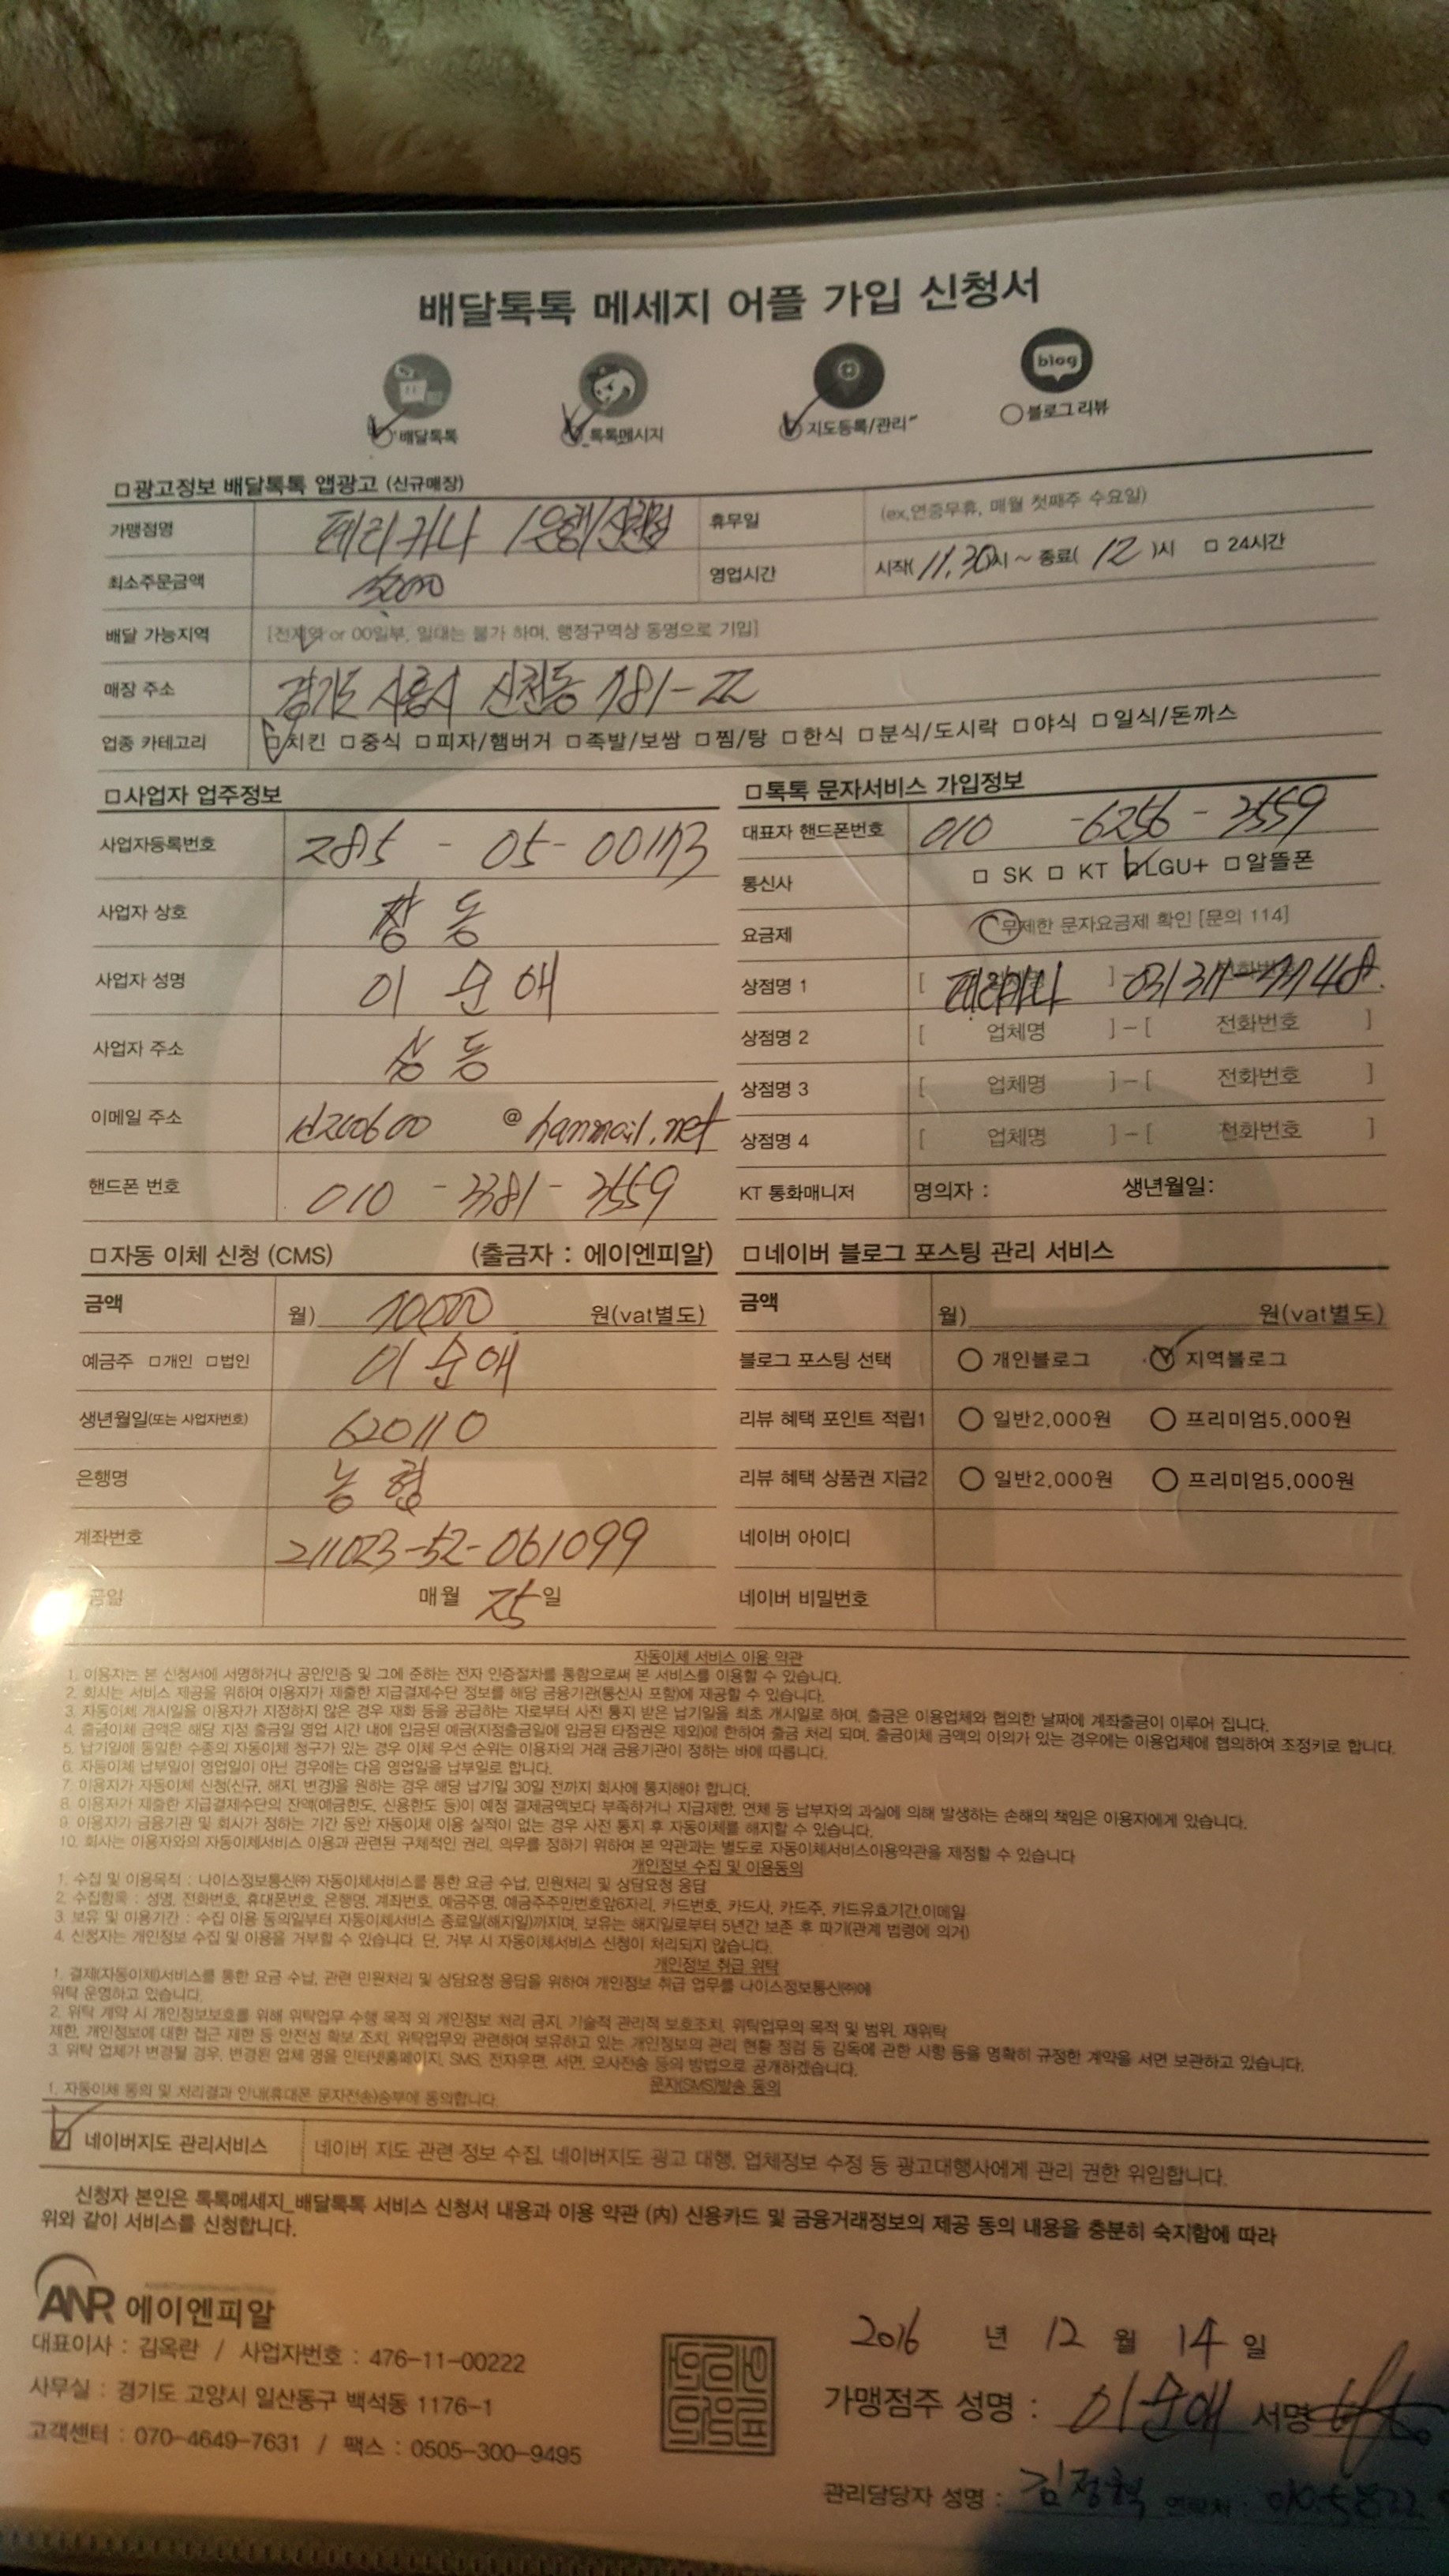 배달톡톡 메세지 어플 가입 신청서
blog
배달톡톡 톡톡메시지 지도등록/관리 블로그 리뷰
□광고정보 배달톡톡 앱광고 (신규매장)
가맹점명 페리카나 /은행/신천점 휴무일 (ex,연중무휴, 매월 첫째주 수요일)
최소주문금액 영업시간 시작( 11.30 )시 ~ 종료( 12 )시 □ 24시간
배달 가능지역 [전지역 or 00일부, 일대는 불가 하며, 행정구역상 동명으로 기입]
매장 주소 경기도 시흥시 신천동 781-22
업종 카테고리 □치킨 □중식 □피자/햄버거 □족발/보쌈 □찜/탕 □한식 □분식/도시락 □야식 □일식/돈까스
□사업자 업주정보 □톡톡 문자서비스 가입정보
사업자등록번호 285 - 05 - 00173 대표자 핸드폰번호 010 -6256 - 3559
통신사 □ SK □ KT □LGU+ □알뜰폰
사업자 상호 요금제 무제한 문자요금제 확인 [문의 114]
사업자 성명 이순애 상점명 1 [ 페리카나 ]
사업자 주소 상동 상점명 2 [ 업체명 ]-[ 전화번호 ]
상점명 3 [ 업체명 ]-[ 전화번호 ]
이메일 주소 @ hanmail.net 상점명 4 [ 업체명 ]-[ 전화번호 ]
핸드폰 번호 010 - 3381 - 3559 KT 통화매니저 명의자 : 생년월일:
□자동 이체 신청 (CMS) (출금자 : 에이엔피알) □네이버 블로그 포스팅 관리 서비스
금액 월) 원(vat별도) 금액 월) 원(vat별도)
예금주 □개인 □법인 이순애 블로그 포스팅 선택 개인블로그 지역블로그
생년월일(또는 사업자번호) 620110 리뷰 혜택 포인트 적립1 일반2,000원 프리미엄5,000원
은행명 농협 리뷰 혜택 상품권 지급2 일반2,000원 프리미엄5,000원
계좌번호 211023-52-061099 네이버 아이디
금일 매월 25 일 네이버 비밀번호
자동이체 서비스 이용 약관
1. 이용자는 본 신청서에 서명하거나 공인인증 및 그에 준하는 전자 인증절차를 통함으로써 본 서비스를 이용할 수 있습니다.
2. 회사는 서비스 제공을 위하여 이용자가 제출한 지급결제수단 정보를 해당 금융기관(통신사 포함)에 제공할 수 있습니다.
3. 자동이체 개시일을 이용자가 지정하지 않은 경우 재화 등을 공급하는 자로부터 사전 통지 받은 납기일을 최초 개시일로 하며, 출금은 이용업체와 협의한 날짜에 계좌출금이 이루어 집니다.
4. 출금이체 금액은 해당 지정 출금일 영업 시간 내에 입금된 예금(지정출금일에 입금된 타점권은 제외)에 한하여 출금 처리 되며, 출금이체 금액의 이의가 있는 경우에는 이용업체에 협의하여 조정키로 합니다.
5. 납기일에 동일한 수종의 자동이체 청구가 있는 경우 이체 우선 순위는 이용자의 거래 금융기관이 정하는 바에 따릅니다.
6. 자동이체 납부일이 영업일이 아닌 경우에는 다음 영업일을 납부일로 합니다.
7. 이용자가 자동이체 신청(신규, 해지, 변경)을 원하는 경우 해당 납기일 30일 전까지 회사에 통지해야 합니다.
8. 이용자가 제출한 지급결제수단의 잔액(예금한도, 신용한도 등)이 예정 결제금액보다 부족하거나 지급제한, 연체 등 납부자의 과실에 의해 발생하는 손해의 책임은 이용자에게 있습니다.
9. 이용자가 금융기관 및 회사가 정하는 기간 동안 자동이체 이용 실적이 없는 경우 사전 통지 후 자동이체를 해지할 수 있습니다.
10. 회사는 이용자와의 자동이체서비스 이용과 관련된 구체적인 권리, 의무를 정하기 위하여 본 약관과는 별도로 자동이체서비스이용약관을 제정할 수 있습니다
개인정보 수집 및 이용동의
1. 수집 및 이용목적 : 나이스정보통신㈜ 자동이체서비스를 통한 요금 수납, 민원처리 및 상담요청 응답
2. 수집항목 : 성명, 전화번호, 휴대폰번호, 은행명, 계좌번호, 예금주명, 예금주주민번호앞6자리, 카드번호, 카드사, 카드주, 카드유효기간,이메일
3. 보유 및 이용기간 : 수집 이용 동의일부터 자동이체서비스 종료일(해지일)까지며, 보유는 해지일로부터 5년간 보존 후 파기(관계 법령에 의거)
4. 신청자는 개인정보 수집 및 이용을 거부할 수 있습니다. 단, 거부 시 자동이체서비스 신청이 처리되지 않습니다.
개인정보 취급 위탁
1. 결제(자동이체)서비스를 통한 요금 수납, 관련 민원처리 및 상담요청 응답을 위하여 개인정보 취급 업무를 나이스정보통신㈜에
위탁 운영하고 있습니다.
2. 위탁 계약 시 개인정보보호를 위해 위탁업무 수행 목적 외 개인정보 처리 금지, 기술적 관리적 보호조치, 위탁업무의 목적 및 범위, 재위탁
제한, 개인정보에 대한 접근 제한 등 안전성 확보 조치, 위탁업무와 관련하여 보유하고 있는 개인정보의 관리 현황 점검 등 감독에 관한 사항 등을 명확히 규정한 계약을 서면 보관하고 있습니다.
3. 위탁 업체가 변경될 경우, 변경된 업체 명을 인터넷홈페이지, SMS, 전자우편, 서면, 모사전송 등의 방법으로 공개하겠습니다.
문자(SMS)발송 동의
1. 자동이체 동의 및 처리결과 안내(휴대폰 문자전송)송부에 동의합니다.
네이버지도 관리서비스 네이버 지도 관련 정보 수집, 네이버지도 광고 대행, 업체정보 수정 등 광고대행사에게 관리 권한 위임합니다.
신청자 본인은 톡톡메세지_배달톡톡 서비스 신청서 내용과 이용 약관 (內) 신용카드 및 금융거래정보의 제공 동의 내용을 충분히 숙지함에 따라
위와 같이 서비스를 신청합니다.
ANR 에이엔피알
대표이사 : 김옥란 / 사업자번호 : 476-11-00222
사무실 : 경기도 고양시 일산동구 백석동 1176-1
고객센터 : 070-4649-7631 / 팩스 : 0505-300-9495
2016 년 12 월 14 일
가맹점주 성명 : 이순애 서명
관리담당자 성명 : 김정혁 연락처 :